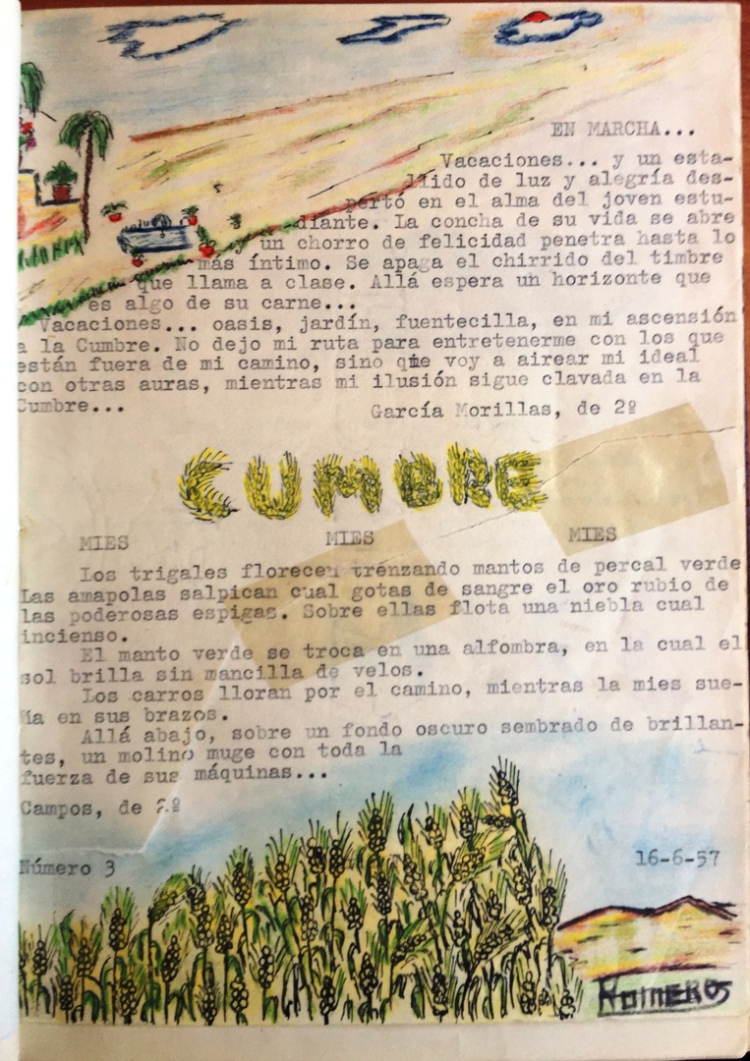 EN MARCHA...
Vacaciones... y un esta-
llido de luz y alegría des-
pertó en el alma del joven estu-
diante. La concha de su vida se abre
y un chorro de felicidad penetra hasta lo
más íntimo. Se apaga el chirrido del timbre
que llama a clase. Allá espera un horizonte que
es algo de su carne...
Vacaciones... oasis, jardín, fuentecilla, en mi ascensión
a la Cumbre. No dejo mi ruta para entretenerme con los que
están fuera de mi camino, sino que voy a airear mi ideal
con otras auras, mientras mi ilusión sigue clavada en la
Cumbre...
García Morillas, de 2º
CUMBRE
MIES MIES MIES
Los trigales florecen trenzando mantos de percal verde
Las amapolas salpican cual gotas de sangre el oro rubio de
las poderosas espigas. Sobre ellas flota una niebla cual
incienso.
El manto verde se troca en una alfombra, en la cual el
sol brilla sin mancilla de velos.
Los carros lloran por el camino, mientras la mies sue-
ña en sus brazos.
Allá abajo, sobre un fondo oscuro sembrado de brillan-
tes, un molino muge con toda la
fuerza de sus máquinas...
Campos, de 2º
Número 3
16-6-57
ROMEROS